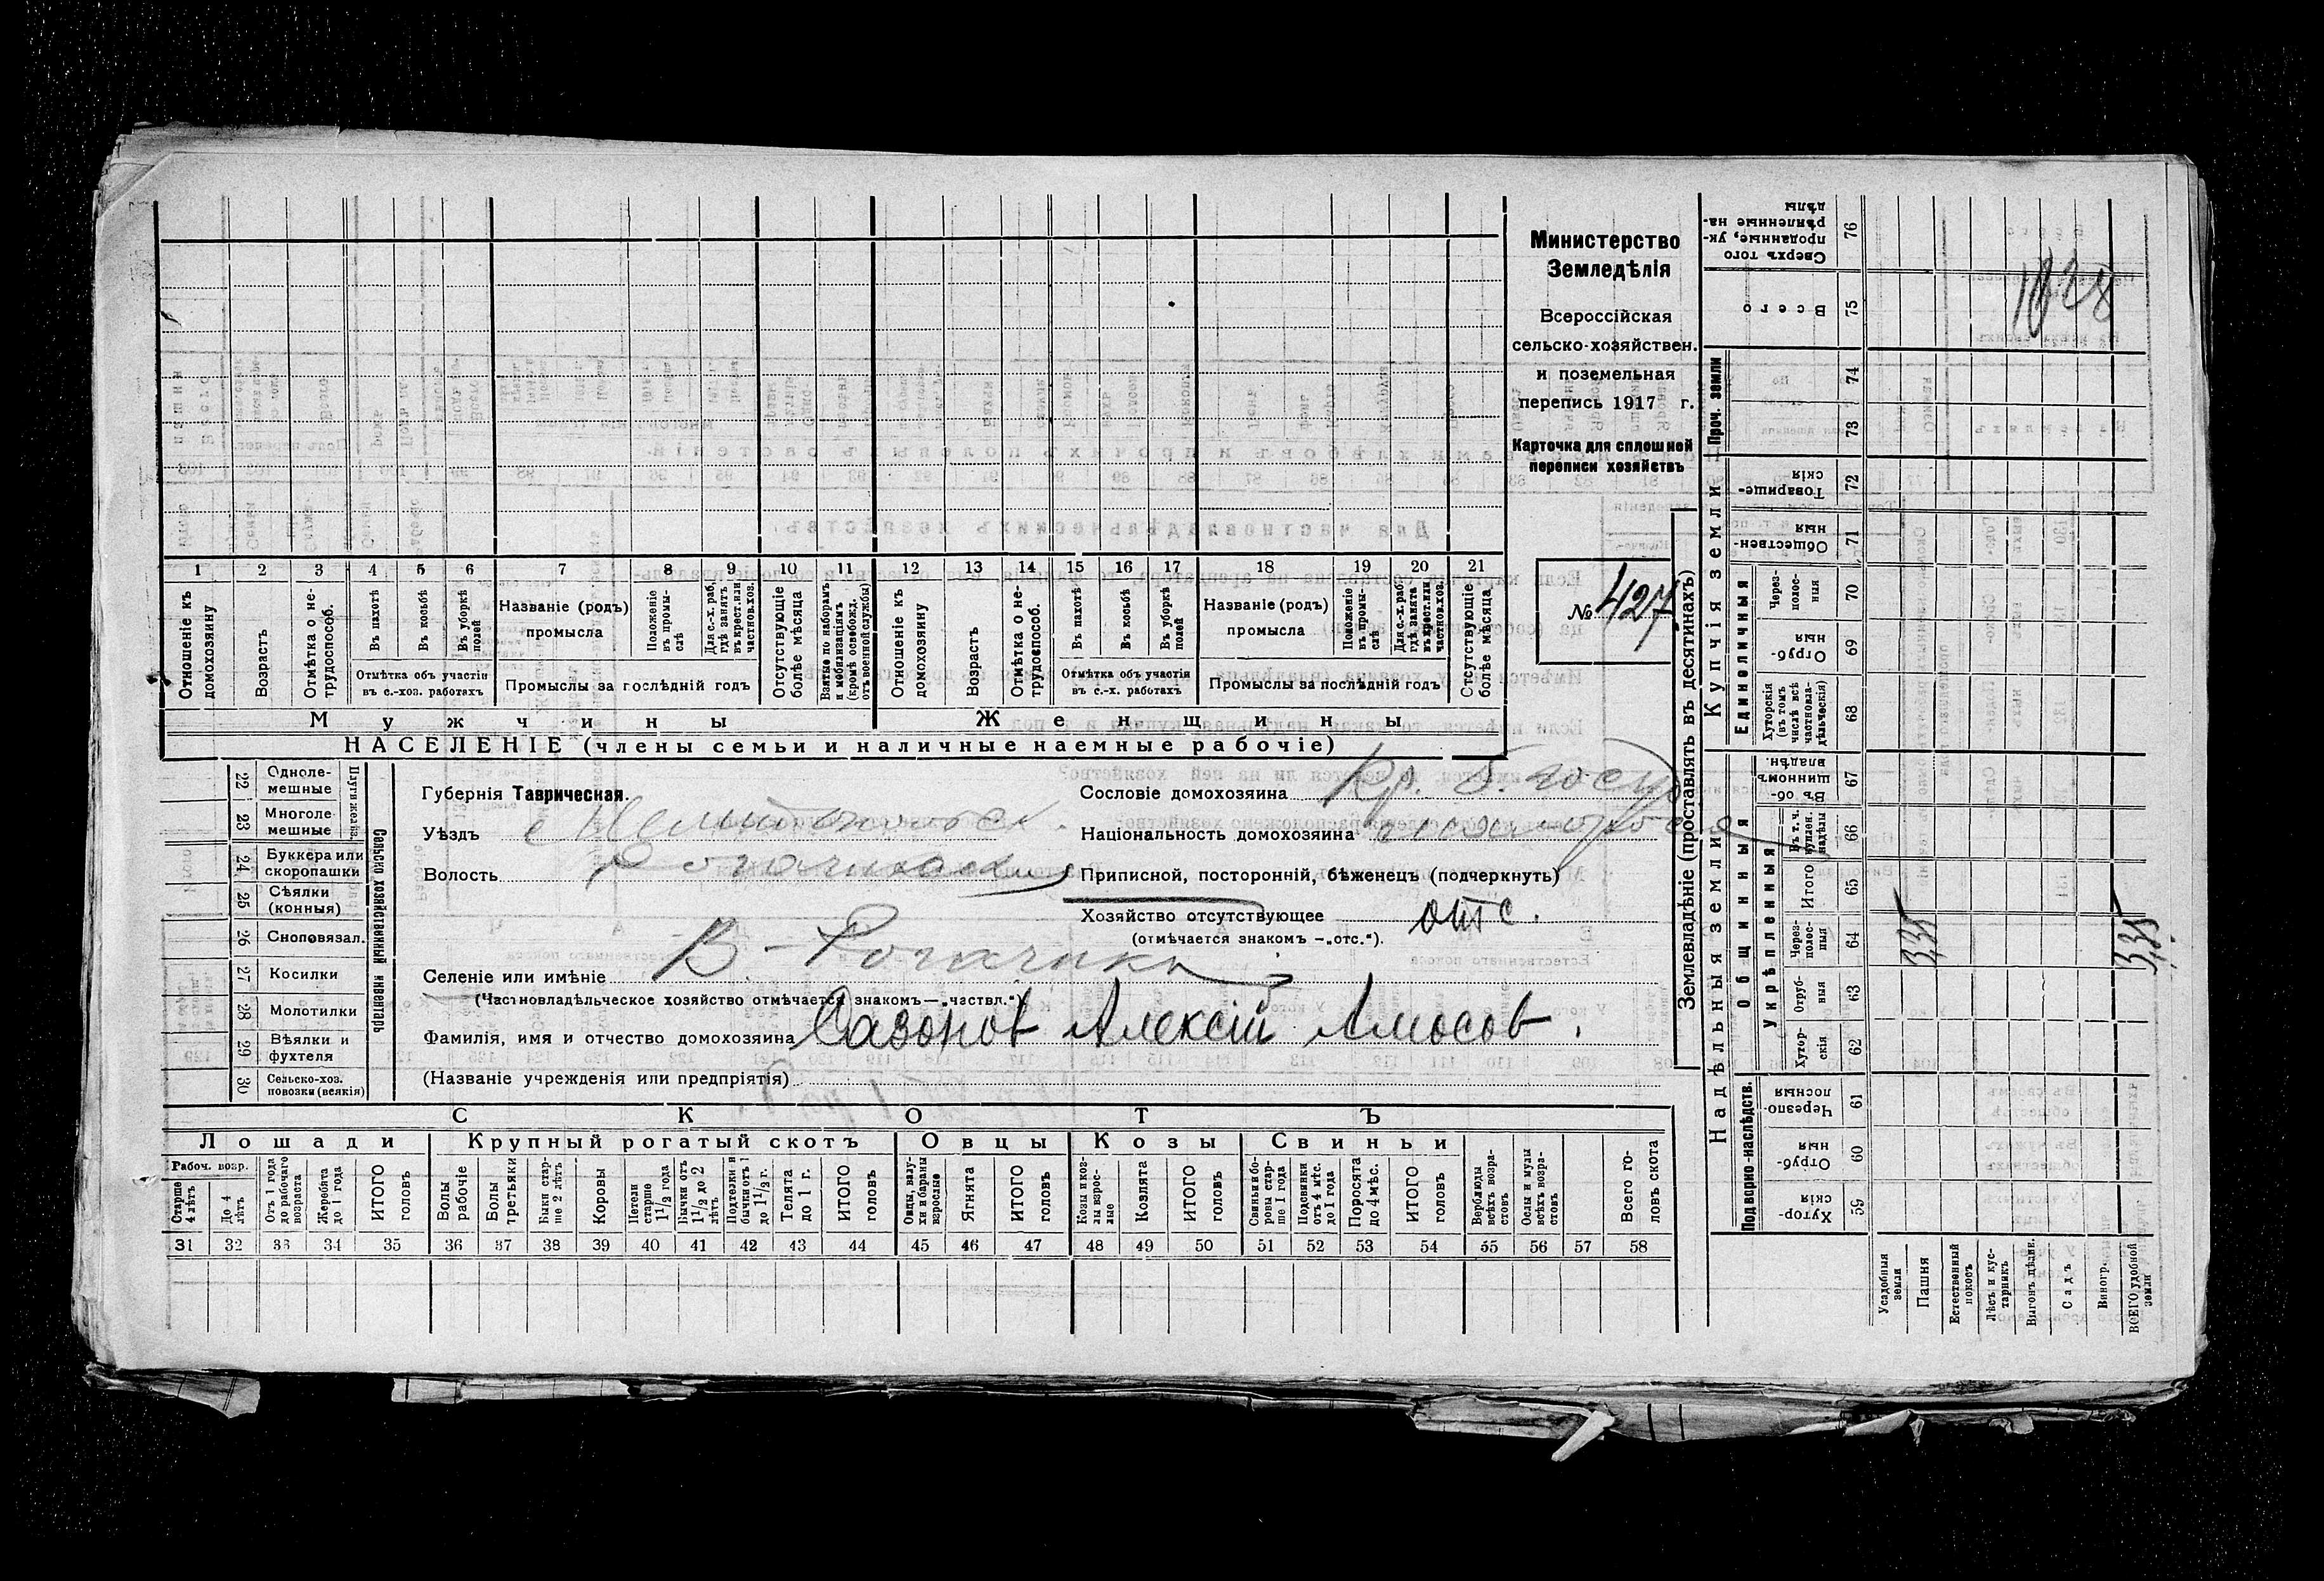 Министерство
Земледѣлія
Всероссійская
сельско-хозяйствен.
и поземельная
перепись 1917 г.
Карточка для сплошной
переписи хозяйствъ
№ 427
1 2 3 4 5 6 7 8 9 10 11 12 13 14 15 16 17 18 19 20 21
Отношеніе къ домохозяину
Возрастъ
Отмѣтка о нетрудоспособ.
Въ пахотѣ
Въ косьбѣ
Въ уборкѣ полей
Отмѣтка объ участіи
въ с.-хоз. работахъ
Названіе (родъ)
промысла
Положеніе въ промыслѣ
Для с.-х. раб. гдѣ занятъ въ крест. или частнов. хоз.
Промыслы за послѣдній годъ
Отсутствующіе болѣе мѣсяца
Взятые по наборамъ и мобилизаціямъ (кромѣ освобожд. отъ военной службы)
Отношеніе къ домохозяину
Возрастъ
Отмѣтка о нетрудоспособ.
Въ пахотѣ
Въ косьбѣ
Въ уборкѣ полей
Отмѣтка объ участіи
въ с.-х. работахъ
Названіе (родъ)
промысла
Положеніе въ промыслѣ
Для с.-х. раб. гдѣ занята въ крест. или частнов. хоз.
Промыслы за послѣдній годъ
Отсутствующіе болѣе мѣсяца
Мужчины
Женщины
НАСЕЛЕНІЕ (члены семьи и наличные наемные рабочіе)
22 Однолемешные
23 Многолемешные
Плуги желѣз.
24 Буккера или скоропашки
25 Сѣялки (конныя)
26 Сноповязал.
27 Косилки
28 Молотилки
29 Вѣялки и фухтеля
30 Сельско-хоз. повозки (всякія)
Сельско хозяйственный инвентарь
Губернія Таврическая.
Уѣздъ Мелитопольск.
Волость Рогачикская
Селеніе или имѣніе В-Рогачикъ
(Частновладѣльческое хозяйство отмѣчается знакомъ—„частвл.“)
Фамилія, имя и отчество домохозяина Сазонов Алексій Амосов.
(Названіе учрежденія или предпріятія)
Сословіе домохозяина Кр. б. госуд
Національность домохозяина
Приписной, посторонній, бѣженецъ (подчеркнуть)
Хозяйство отсутствующее отс.
(отмѣчается знакомъ —„отс.“).
СКОТЪ
Лошади
Крупный рогатый скотъ
Овцы
Козы
Свиньи
Рабоч. возр.
Старше 4 лѣтъ
До 4 лѣтъ
Отъ 1 года до рабочаго возраста
Жеребята до 1 года
ИТОГО головъ
Волы рабочіе
Волы третьяки
Быки старше 2 лѣтъ
Коровы
Нетели старше 1 1/2 года
Бычки отъ 1 1/2 до 2 лѣтъ
Подтелки и бычки отъ 1 до 1 1/2 г.
Телята до 1 г.
ИТОГО головъ
Овцы, валухи и бараны взрослые
Ягнята
ИТОГО головъ
Козы и козлы взрослые
Козлята
ИТОГО головъ
Свиньи и боровы старше 1 года
Подсвинки отъ 4 мѣс. до 1 года
Поросята до 4 мѣс.
ИТОГО головъ
Верблюды всѣхъ возрастовъ
Ослы и мулы всѣхъ возрастовъ
Всего головъ скота
31 32 33 34 35 36 37 38 39 40 41 42 43 44 45 46 47 48 49 50 51 52 53 54 55 56 57 58
Землевладѣніе (проставлять въ десятинахъ)
Купчія земли
Надѣльныя земли
Сверхъ того проданные, укрѣпленные надѣлы 76
Всего 75
Проч. земли
74
73
Товарищескія 72
Общественныя 71
Единоличныя
Черезполосныя 70
Отрубныя 69
Хуторскія (въ томъ числѣ всѣ частновладѣльческія) 68
Общинныя
Въ общинномъ владѣн. 67
Укрѣпленныя
Въ т. ч. куплен. надѣлы 66
Итого 65
Черезполосныя 64
Отрубныя 63
Хуторскія 62
Подворно-наслѣдств.
Черезполосныя 61
Отрубныя 60
Хуторскія 59
Усадебныя земли
Пашня
Естественный покосъ
Лѣсъ и кустарникъ
Выгонъ дѣлин.
Садъ
Виногр.
ВСЕГО удобной земли